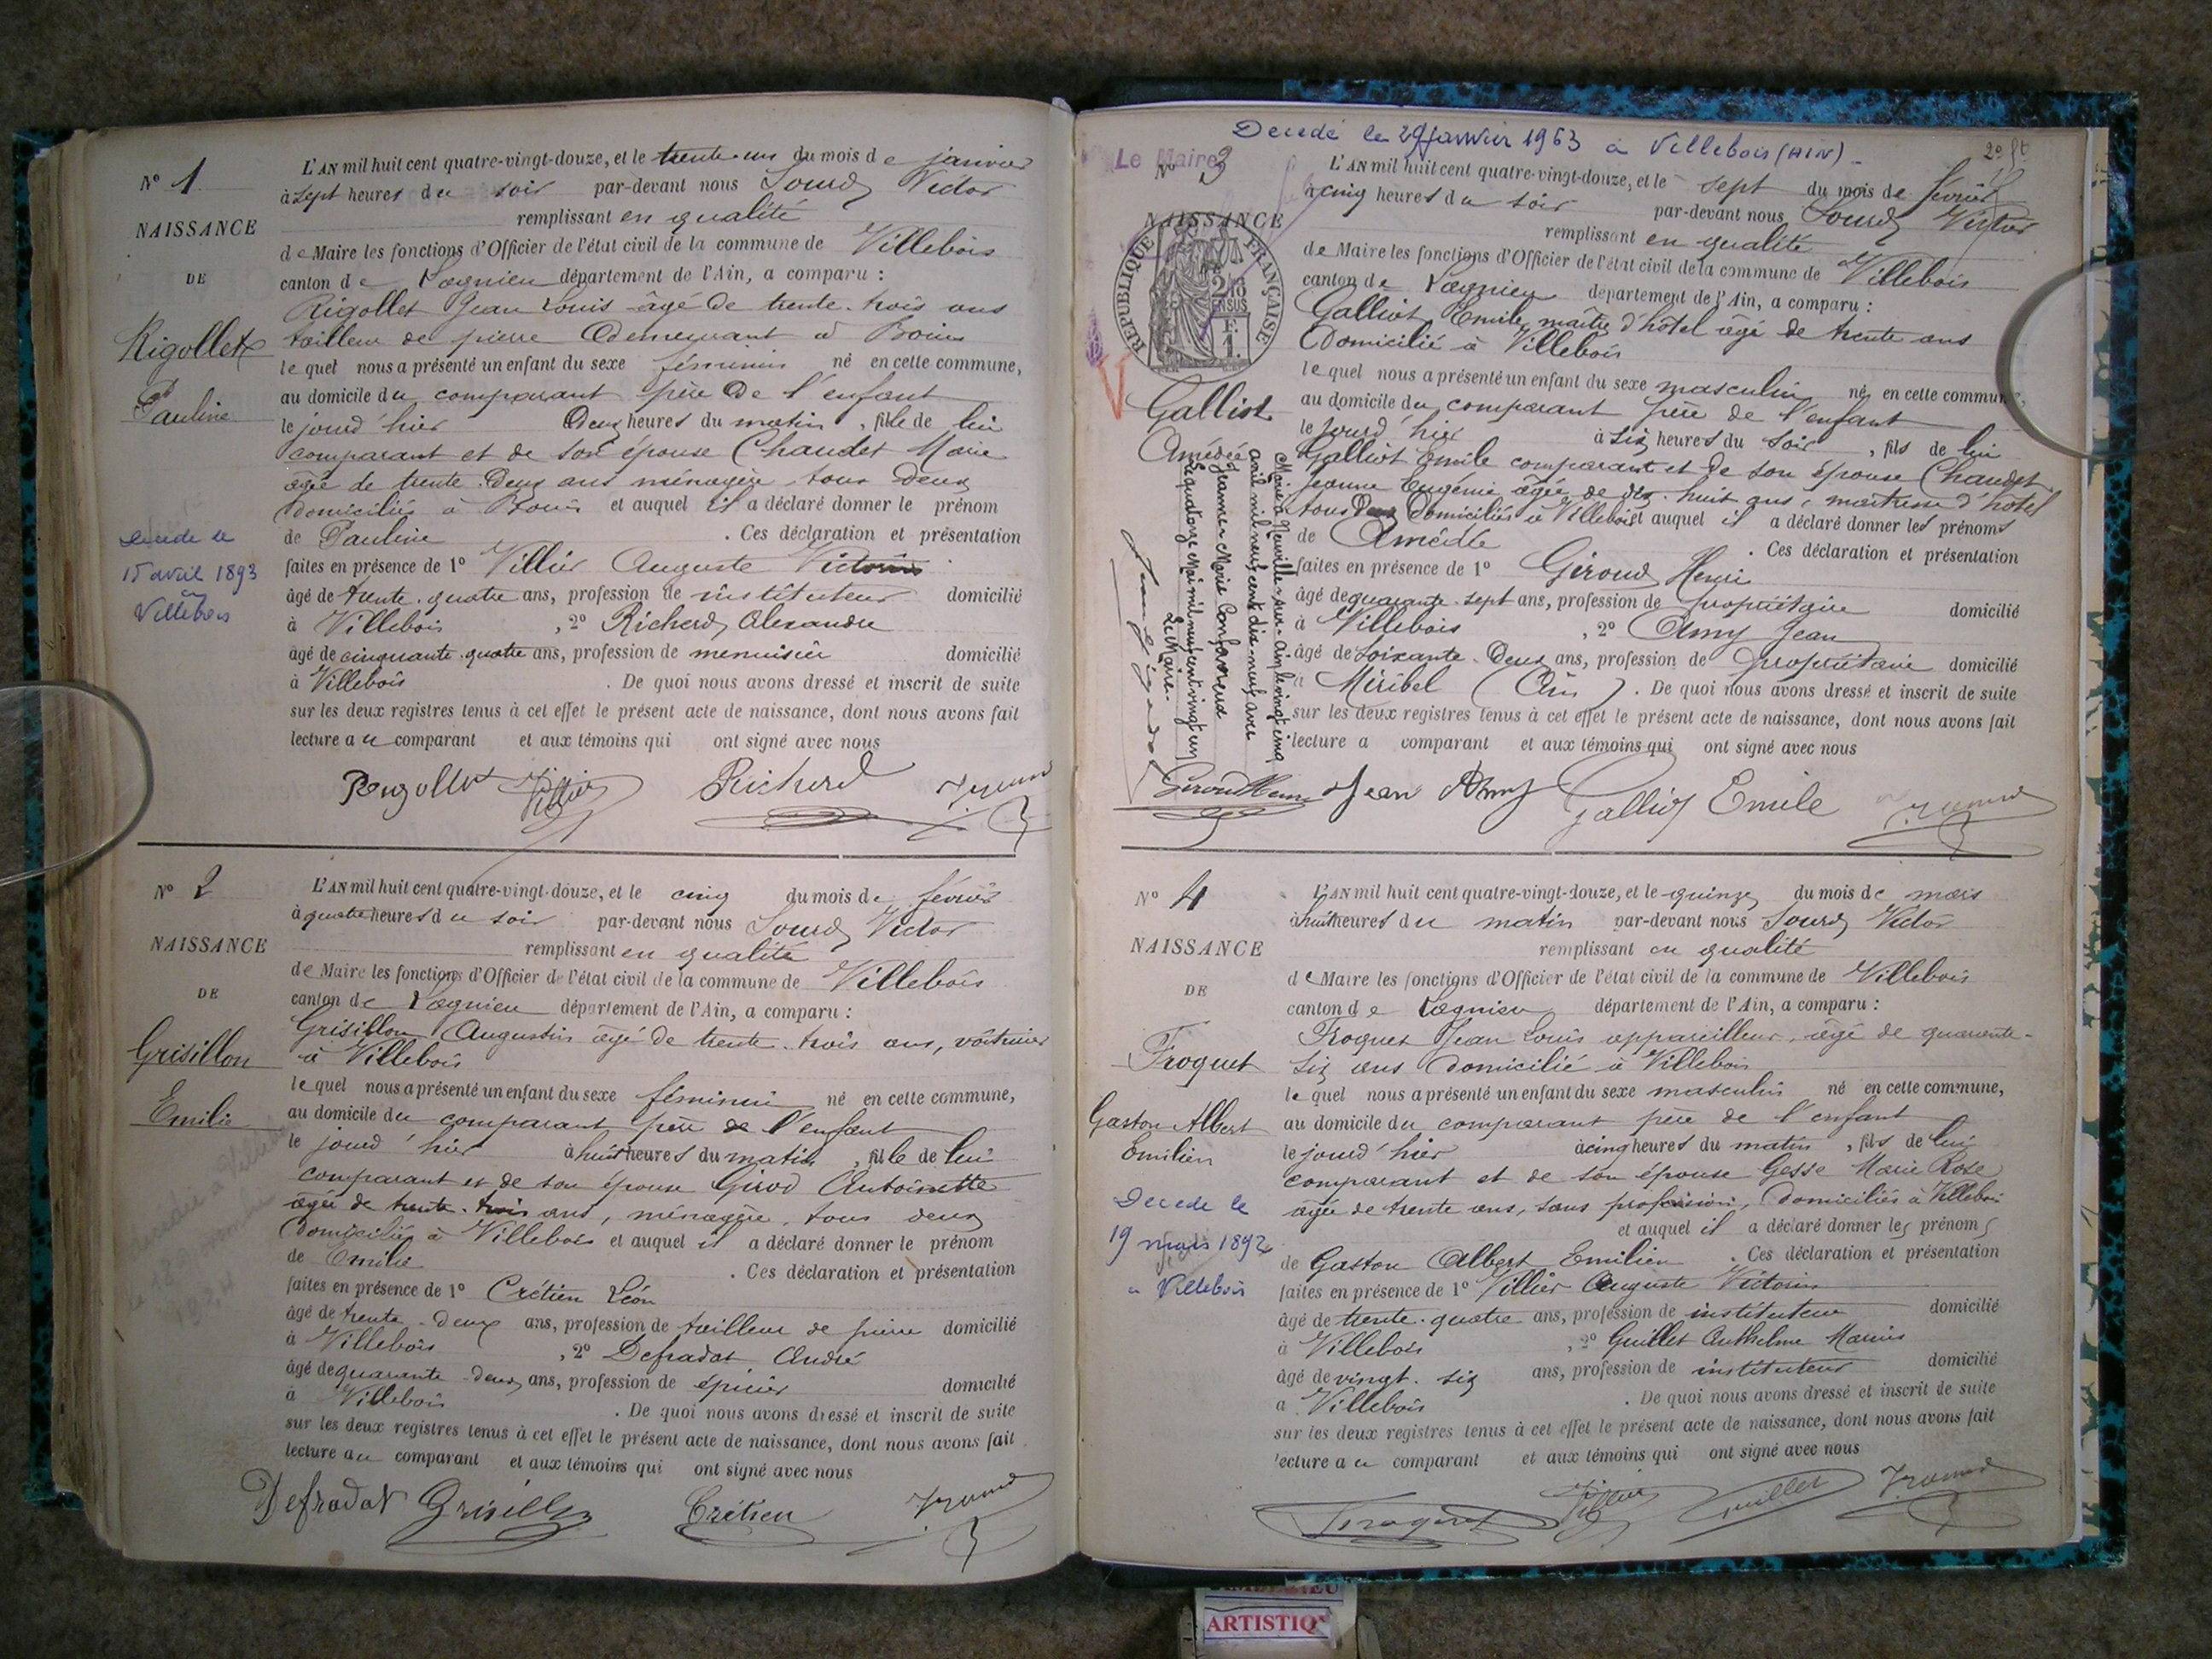 No 1
NAISSANCE
DE
Rigollet
Pauline
décédée le
15 avril 1893
à
Villebois
L'AN mil huit cent quatre-vingt-douze, et le trente-un du mois de janvier
à sept heures du soir par-devant nous Sourd Victor
remplissant en qualité
de Maire les fonctions d'Officier de l'état civil de la commune de Villebois
canton de Lagnieu département de l'Ain, a comparu :
Rigollet Jean Louis âgé de trente-trois ans
tailleur de pierre demeurant à Bouis
lequel nous a présenté un enfant du sexe féminin né en cette commune,
au domicile du comparant père de l'enfant
le jourd'hier deux heures du matin, fille de lui
comparant et de son épouse Chaudet Marie
âgée de trente-deux ans ménagère, tous deux
domiciliés à Bouis et auquel il a déclaré donner le prénom
de Pauline . Ces déclaration et présentation
faites en présence de 1º Villier Auguste Victorin
âgé de trente-quatre ans, profession de instituteur domicilié
à Villebois , 2º Richerd Alexandre
âgé de cinquante-quatre ans, profession de menuisier domicilié
à Villebois . De quoi nous avons dressé et inscrit de suite
sur les deux registres tenus à cet effet le présent acte de naissance, dont nous avons fait
lecture au comparant et aux témoins qui ont signé avec nous
Rigollet Villier Richerd
No 2
NAISSANCE
DE
Grisillon
Emilie
L'AN mil huit cent quatre-vingt-douze, et le cinq du mois de février
à quatre heures du soir par-devant nous Sourd Victor
remplissant en qualité
de Maire les fonctions d'Officier de l'état civil de la commune de Villebois
canton de Lagnieu département de l'Ain, a comparu :
Grisillon Augustin âgé de trente-trois ans, voiturier
à Villebois
lequel nous a présenté un enfant du sexe féminin né en cette commune,
au domicile du comparant père de l'enfant
le jourd'hier à huit heures du matin, fille de lui
comparant et de son épouse Girod Antoinette
âgée de trente-trois ans, ménagère, tous deux
domiciliés à Villebois et auquel il a déclaré donner le prénom
de Emilie . Ces déclaration et présentation
faites en présence de 1º Crétien Léon
âgé de trente-deux ans, profession de tailleur de pierre domicilié
à Villebois , 2º Defradat André
âgé de quarante-deux ans, profession de épicier domicilié
à Villebois . De quoi nous avons dressé et inscrit de suite
sur les deux registres tenus à cet effet le présent acte de naissance, dont nous avons fait
lecture au comparant et aux témoins qui ont signé avec nous
Defradat Grisillon Crétien
Decedé le 29 janvier 1963 à Villebois (AIN) -
Le Maire
2e ft
No 3
NAISSANCE
RÉPUBLIQUE FRANÇAISE
Galliot
Amédée
Marié à Neuville-sur-Ain le vingt cinq
avril mil neuf cent dix-neuf avec
Le quatorze Mai mil neuf cent vingt un
Le Maire.
L'AN mil huit cent quatre-vingt-douze, et le sept du mois de février
à cinq heures du soir par-devant nous Sourd Victor
remplissant en qualité
de Maire les fonctions d'Officier de l'état civil de la commune de Villebois
canton de Lagnieu département de l'Ain, a comparu :
Galliot Emile, maître d'hôtel âgé de trente ans
domicilié à Villebois
lequel nous a présenté un enfant du sexe masculin né en cette commune,
au domicile du comparant père de l'enfant
le jourd'hier à six heures du soir, fils de lui
Galliot Emile comparant et de son épouse Chaudet
Jeanne Eugénie âgée de dix-huit ans, maîtresse d'hôtel
tous deux domiciliés à Villebois et auquel il a déclaré donner les prénoms
de Amédée . Ces déclaration et présentation
faites en présence de 1º Giroud Henri
âgé de quarante-sept ans, profession de propriétaire domicilié
à Villebois , 2º Amy Jean
âgé de soixante-deux ans, profession de propriétaire domicilié
à Miribel (Ain) . De quoi nous avons dressé et inscrit de suite
sur les deux registres tenus à cet effet le présent acte de naissance, dont nous avons fait
lecture a comparant et aux témoins qui ont signé avec nous
Giroud Henri Jean Amy Galliot Emile
No 4
NAISSANCE
DE
Froquet
Gaston Albert
Emilien
Decede le
19 mars 1892
à Villebois
L'AN mil huit cent quatre-vingt-douze, et le quinze du mois de mars
à huit heures du matin par-devant nous Sourd Victor
remplissant en qualité
de Maire les fonctions d'Officier de l'état civil de la commune de Villebois
canton de Lagnieu département de l'Ain, a comparu :
Froquet Jean Louis appareilleur, âgé de quarante-
six ans domicilié à Villebois
lequel nous a présenté un enfant du sexe masculin né en cette commune,
au domicile du comparant père de l'enfant
le jourd'hier à cinq heures du matin, fils de lui
comparant et de son épouse Gesse Marie Rose
âgée de trente ans, sans profession, domiciliés à Villebois
et auquel il a déclaré donner les prénoms
de Gaston Albert Emilien . Ces déclaration et présentation
faites en présence de 1º Villier Auguste Victorin
âgé de trente-quatre ans, profession de instituteur domicilié
à Villebois , 2º Guillet Anthelme Marius
âgé de vingt-six ans, profession de instituteur domicilié
à Villebois . De quoi nous avons dressé et inscrit de suite
sur les deux registres tenus à cet effet le présent acte de naissance, dont nous avons fait
lecture au comparant et aux témoins qui ont signé avec nous
Froquet Villier Guillet
ARTISTIQ